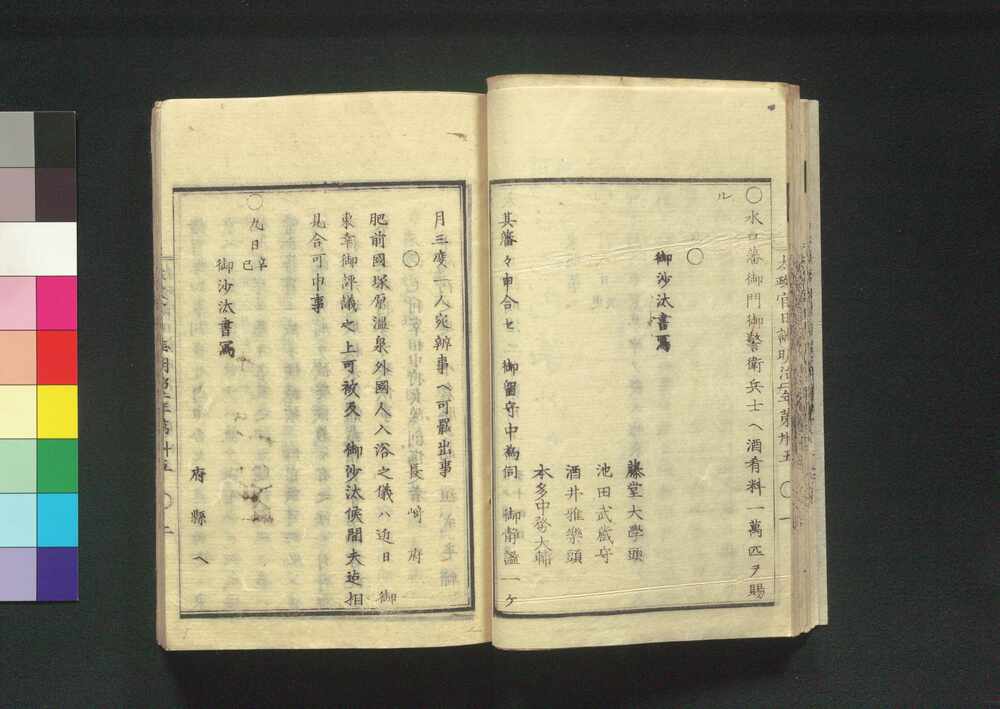 〇水口藩御門御警衛兵士ヘ酒肴料一萬匹ヲ賜
ル
〇
御沙汰書寫
藤堂大學頭
池田武藏守
酒井雅樂頭
本多中務大輔
其藩々申合セ 御留守中為伺 御靜謐一ケ
月三度一人宛辨事ヘ可罷出事
〇 長崎府
肥前國塚原溫泉外國人入浴之儀ハ近日 御
東幸御評議之上可被及 御沙汰候間夫迄相
見合可申事
〇九日辛巳
御沙汰書寫
府縣ヘ